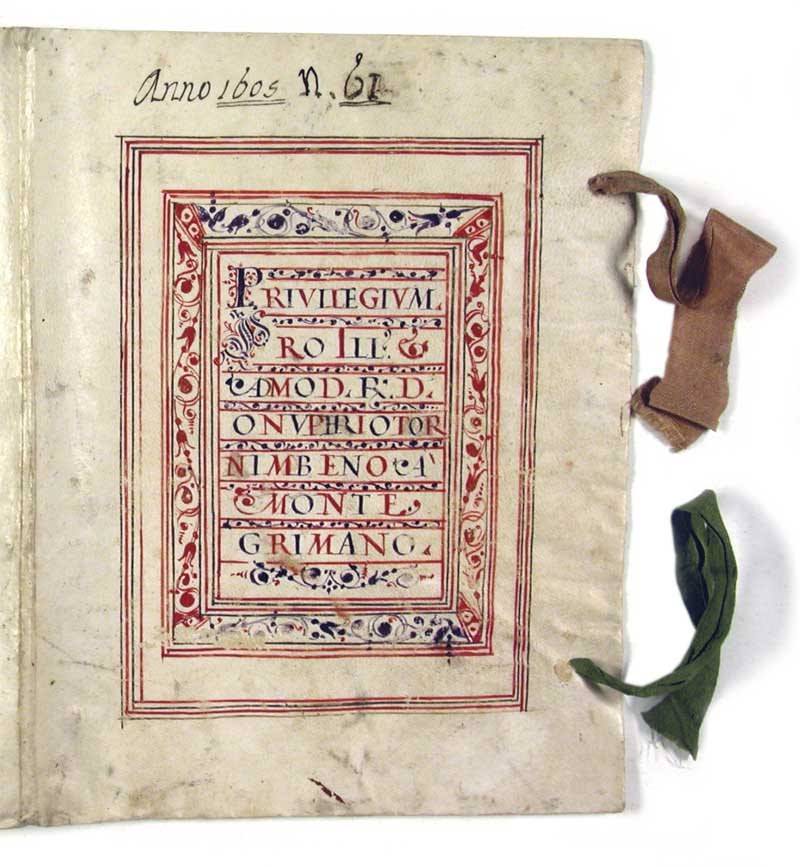 Anno 1605 N. 61
PRIVILEGIVM
PRO ILL.
ADMOD. R. D.
ONVPHRIO TOR
NIMBENO A
MONTE
GRIMANO.